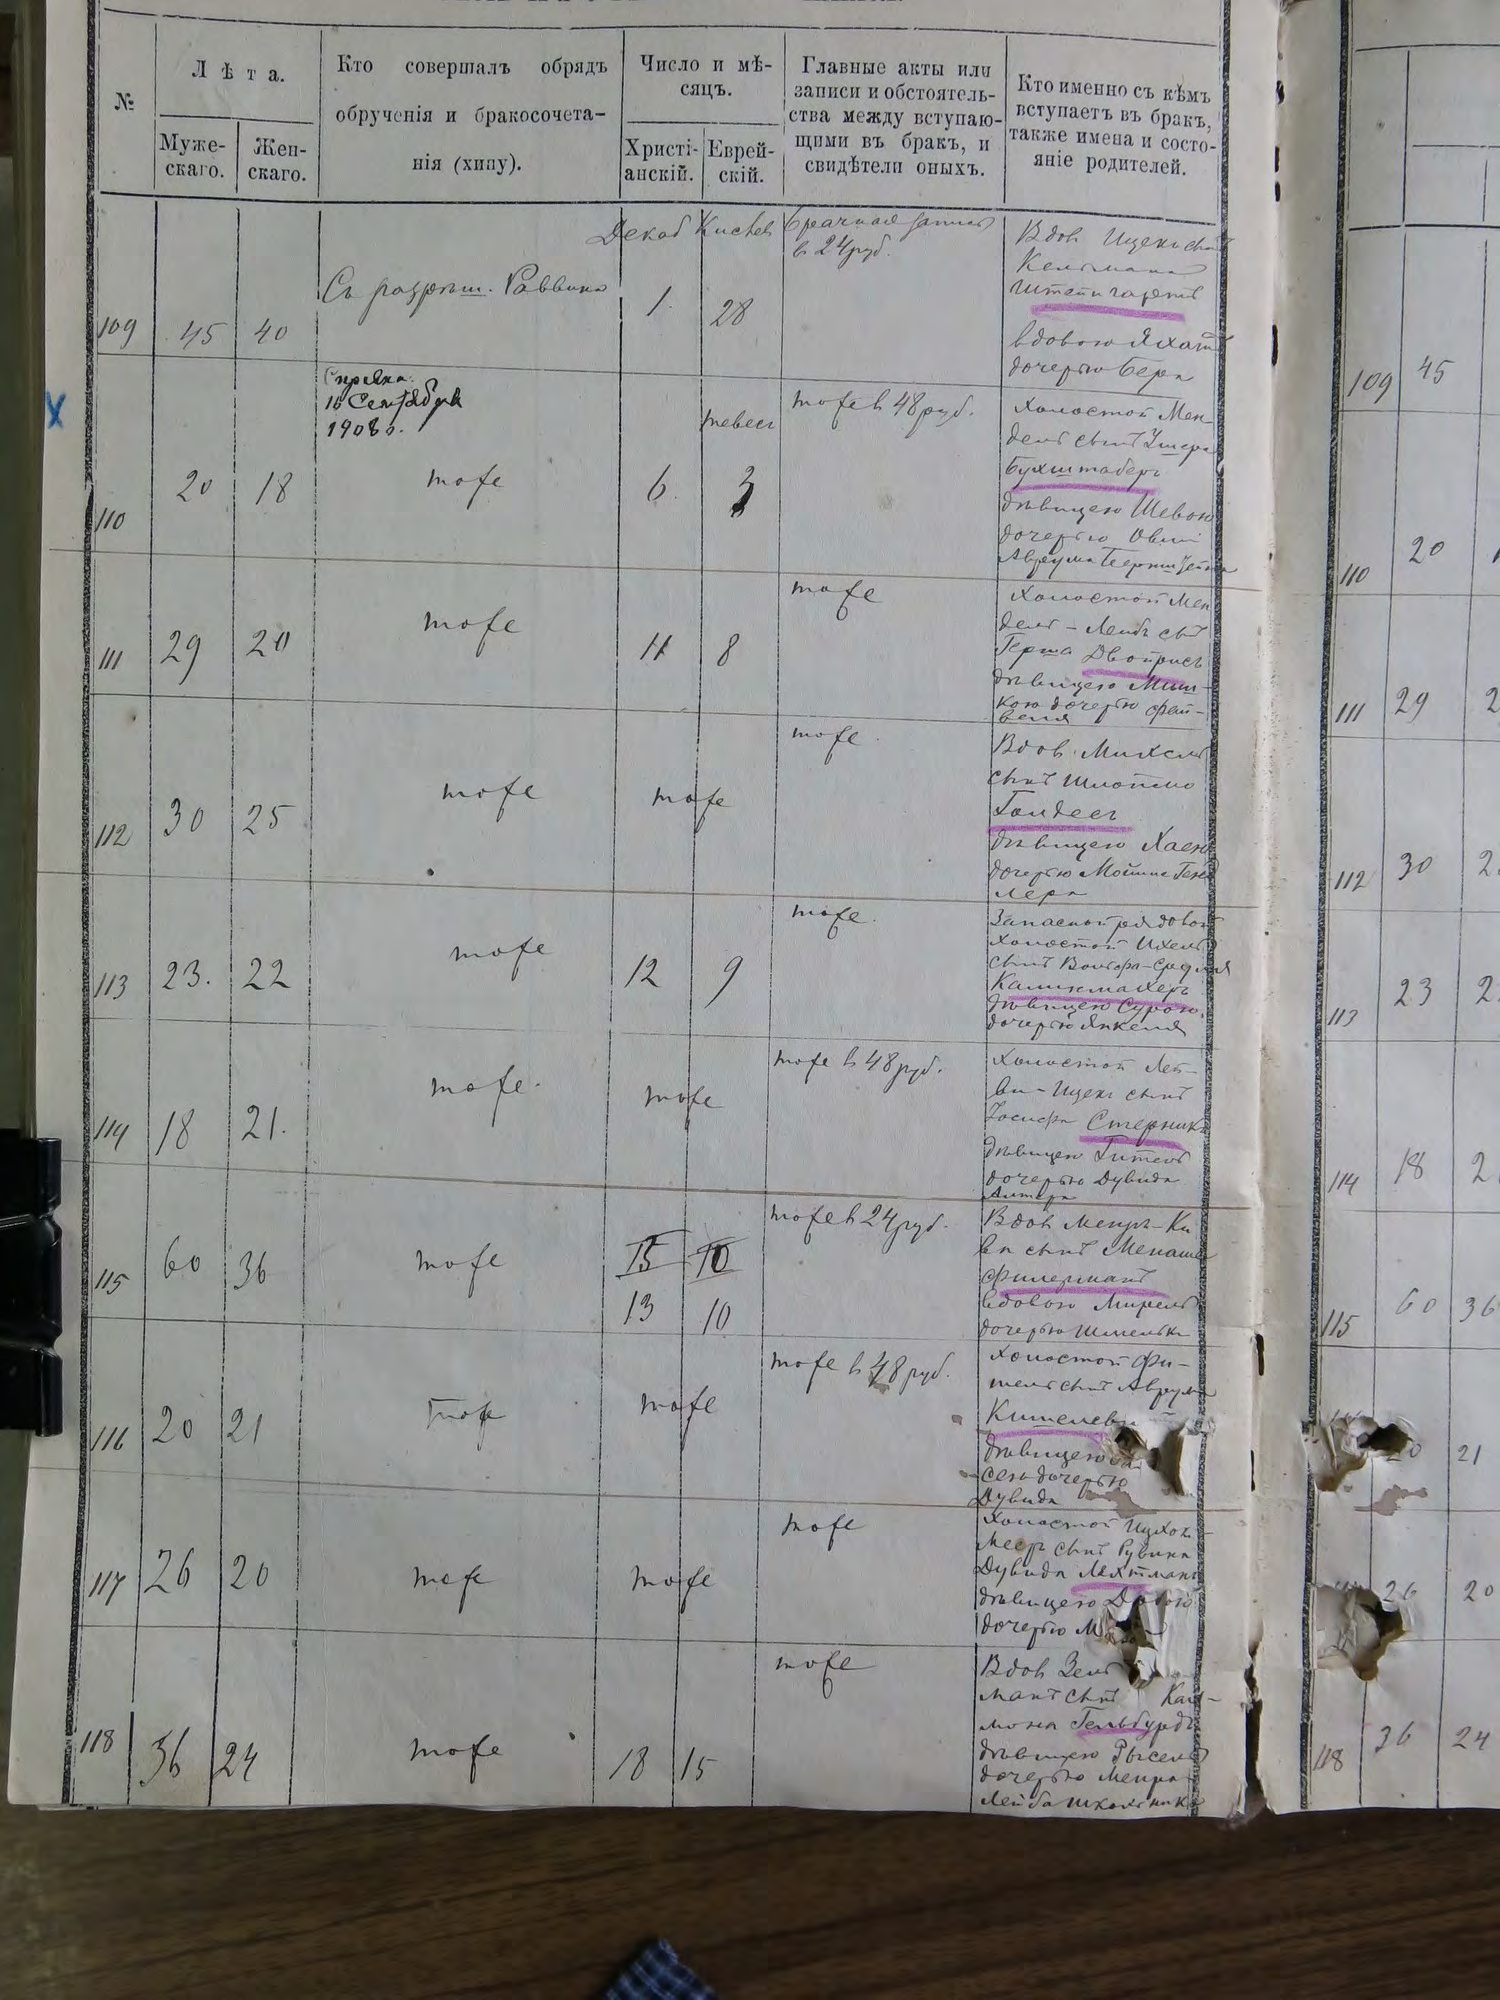 №
Лѣта.
Муже-
скаго.
Жен-
скаго.
Кто совершалъ обрядъ
обрученія и бракосочета-
нія (хипу).
Число и мѣ-
сяцъ.
Христі-
анскій.
Еврей-
скій.
Главные акты или
записи и обстоятель-
ства между вступаю-
щими въ бракъ, и
свидѣтели оныхъ.
Кто именно съ кѣмъ
вступаетъ въ бракъ,
также имена и состо-
яніе родителей.
109
45
40
Съ разрѣш. Раввина
Декаб
1.
Кислев
28
Брачная запись
в 24 руб.
Вдов Ицекъ сынъ
Кельмана
Штейнгартъ
вдовою
дочерью Бера
110
20
18
Справка
1908 г.
тоже
6.
тевес
3
тоже в 48 руб.
холостой Мен-
дель сынъ Ушера
Бухштаберъ
дѣвицею Шевою
дочерью Овші
Аврума
111
29
20
тоже
11
8
тоже
холостой Мен
дель-Лейбъ сынъ
Герша Двойрисъ
дѣвицею Мин-
кою дочерью Фай-
веля
112
30
25
тоже
тоже
тоже
Вдов Михель
сынъ Шлоймо
Голдесъ
дѣвицею Хаею
дочерью Мойше
лера
113
23.
22
тоже
12
9
тоже.
Запасной рядовой
холостой Ихель
сынъ Вольфа-Сруля
дѣвицею Сурою
дочерью Янкеля
114
18
21.
тоже.
тоже
тоже в 48 руб.
холостой Лей-
ви-Ицекъ сынъ
Іосифа Стерникъ
дѣвицею Гителъ
дочерью Дувида
Алтера
115
60
36
тоже
15
10
13
10
тоже в 24 руб.
Вдов Мееръ-Ки
ва сынъ Менаше
вдовою Мирелъ
дочерью Шмелька
116
20
21
тоже
тоже
тоже в 48 руб.
холостой Фи-
шель сынъ Аврума
дѣвицею
сею дочерью
Дувида
117
26
20
тоже
тоже
тоже
холостой Ицхок-
Меер сынъ Рувина
Дувида Лехтманъ
дѣвицею
дочерью
118
36
24
тоже
18
15
тоже
Вдов Зель
манъ сынъ Кал-
мона Гельбурдъ
дѣвицею Рыселъ
дочерью Меира-
Лейба Школьника
109
45
110
20
111
29
112
30
113
23
114
18
115
60
36
21
26
20
118
36
24